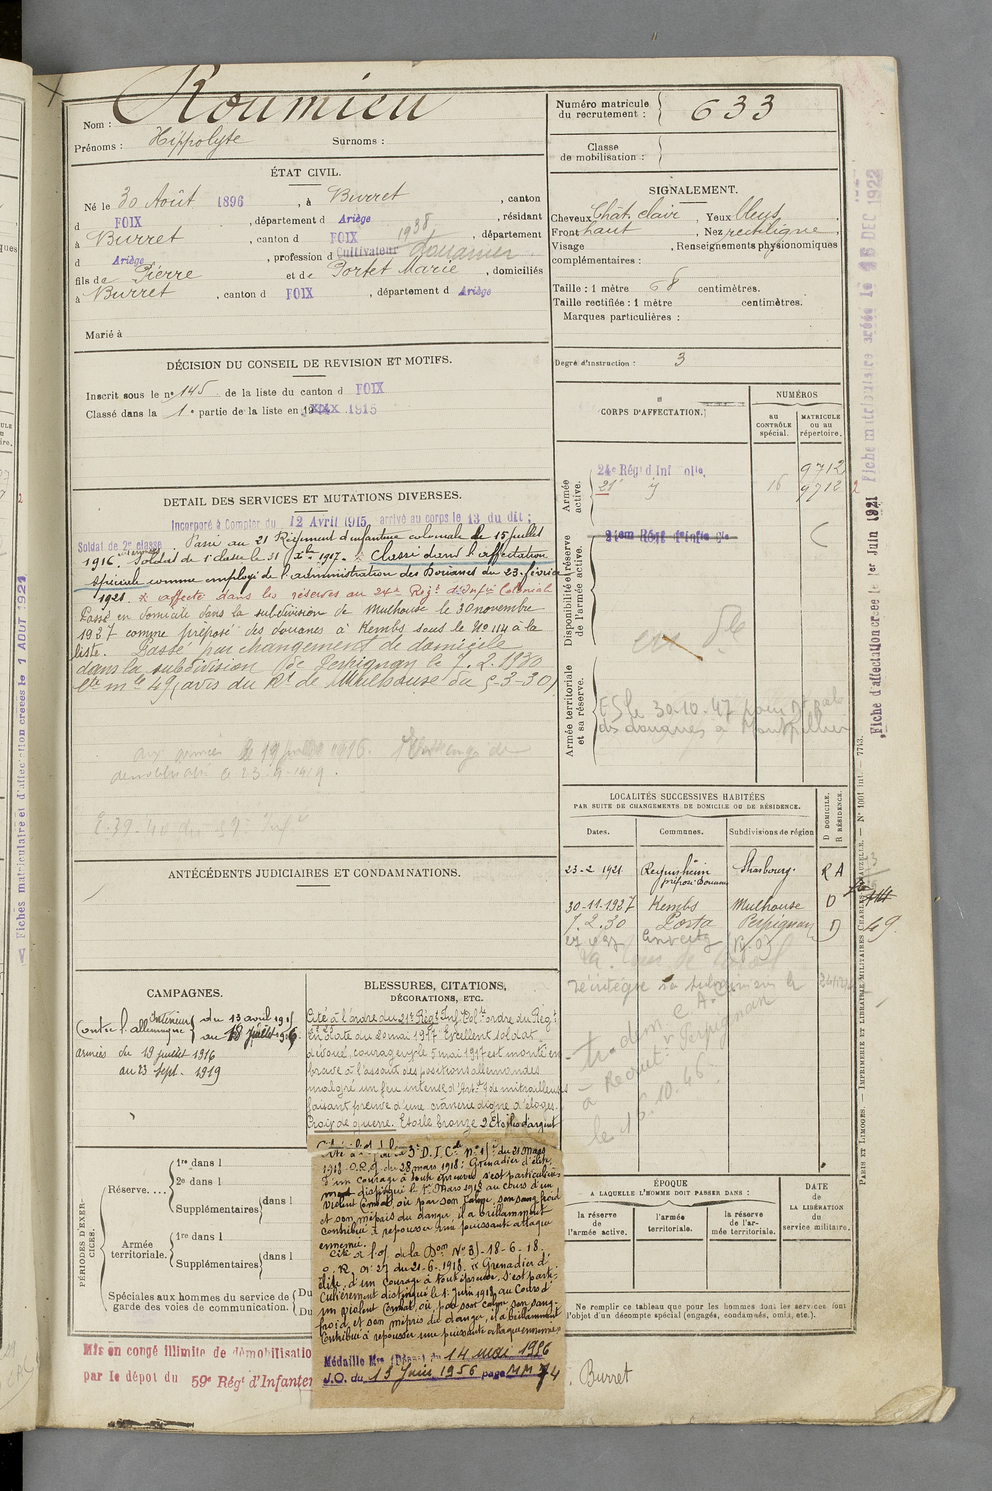 Roumieu
Nom :
Prénoms : Hippolyte Surnoms :
Numéro matricule du recrutement : 633
Classe de mobilisation :
ÉTAT CIVIL.
Né le 30 Août 1896, à Burret, canton
d FOIX, département d Ariège, résidant
à Burret, canton d FOIX, département
1938
d Ariège, profession d Cultivateur douanier
fils de Pierre et de Portet Marie, domiciliés
à Burret, canton d FOIX, département d Ariège
Marié à
SIGNALEMENT.
Cheveux Chât. clair, Yeux bleus,
Front haut, Nez rectiligne,
Visage , Renseignements physionomiques
complémentaires :
Taille : 1 mètre 68 centimètres.
Taille rectifiée : 1 mètre centimètres.
Marques particulières :
Degré d'instruction : 3
DÉCISION DU CONSEIL DE REVISION ET MOTIFS.
Inscrit sous le nº 145 de la liste du canton d FOIX
Classé dans la 1e partie de la liste en 1915
CORPS D'AFFECTATION.
NUMÉROS
AU CONTRÔLE spécial.
MATRICULE ou au répertoire.
Armée active.
24e Régt d'Inf Colle. 9712
21e 16 9712
Disponibilité et réserve de l'armée active.
21em Régt d'Infie Cle
Armée territoriale et sa réserve.
ES le 30-10-47
des douanes à Montpellier
DETAIL DES SERVICES ET MUTATIONS DIVERSES.
Incorporé à Compter du 12 Avril 1915 arrivé au corps le 13 du dit ;
Soldat de 2e classe Passé au 21 Régiment d'infanterie coloniale le 15 juillet
1916. Soldat de 1e classe le 31 Xbre 1917. Classé dans l'affectation
spéciale comme employé de l'administration des Douanes du 23 février
1921. affecté dans les réserves au 24e Régt d'Infie Coloniale
Passé en domicile dans la subdivision de Mulhouse le 30 novembre
1927 comme préposé des douanes à Kembs sous le Nº 114 à la
liste. Passé par changement de domicile
dans la subdivision de Perpignan le 7.2.1930
49 (avis du Rt de Mulhouse du 5-3-30)
aux armées le 19 juillet 1916.
ANTÉCÉDENTS JUDICIAIRES ET CONDAMNATIONS.
LOCALITÉS SUCCESSIVES HABITÉES
PAR SUITE DE CHANGEMENTS DE DOMICILE OU DE RÉSIDENCE.
Dates. Communes. Subdivisions de région
D DOMICILE. R RÉSIDENCE.
23-2 1921 Requisheim préposé Douanes Strasbourg. R A
30-11-1927 Kembs Mulhouse D 114
7.2.30 Porta Perpignan D 49.
Perpignan
le 16.10.46.
CAMPAGNES.
Contre l'allemagne
Intérieur du 13 avril 1915
au 18 juillet 1916.
armées du 19 juillet 1916
au 23 Sept. 1919
BLESSURES, CITATIONS, DÉCORATIONS, ETC.
Cité à l'ordre du 21e Régt Inf Cole ordre du Régt
en date du 20 mai 1917. Excellent soldat
dévoué, courageux, le 5 mai 1917 est monté en
brave à l'assaut des positions allemandes
malgré un feu intense d'Artie & de mitrailleuses
faisant preuve d'une crânerie digne d'éloges.
Croix de guerre. Etoile bronze 2 Etoiles d'argent
3e D.I.Cle du 21 Mars
1918. O.R. du 28 mars 1918: Grenadier d'élite,
d'un courage à toute épreuve s'est particulière-
ment distingué le 1er Mars 1918 au cours d'un
violent Combat, où par son Calme, son sang froid
et son mépris du danger, il a brillamment
contribué à repousser une puissante attaque
ennemie.
Cité à l'O. de la Don Nº 31-18-6-18.
O.R. nº 27 du 21-6-1918. "Grenadier d'
élite, d'un courage à tout épreuve, s'est parti-
culièrement distingué le 1er Juin 1918 au Cours d'
un violent Combat, où, par son calme, son sang-
froid, et son mépris du danger, il a brillamment
Contribué à repousser une puissante attaque ennemie
Médaille Mre (Décret du 14 mai 1956
J.O. du 13 Juin 1956 page MM 74
PÉRIODES D'EXERCICES.
Réserve....
1re dans l
2e dans l
Supplémentaires dans l
Armée territoriale.
1re dans l
Supplémentaires dans l
Spéciales aux hommes du service de garde des voies de communication.
Du
Du
ÉPOQUE
A LAQUELLE L'HOMME DOIT PASSER DANS :
la réserve de l'armée active.
l'armée territoriale.
la réserve de l'armée territoriale.
DATE de LA LIBÉRATION du service militaire.
Ne remplir ce tableau que pour les hommes dont les services font
l'objet d'un décompte spécial (engagés, condamnés, omis, etc.).
Mis en congé illimité de démobilisatio
par le dépot du 59e Régt d'Infanter
Burret
Fiche matriculaire créée le 16 DEC 1922
Fiche d'affectation créée le 1er Juin 1921
PARIS ET LIMOGES. — IMPRIMERIE ET LIBRAIRIE MILITAIRES CHARLES-LAVAUZELLE. — Nº 1001 int. — 7713.
Fiches matriculaire et d'affectation créées le 1 AOUT 1921